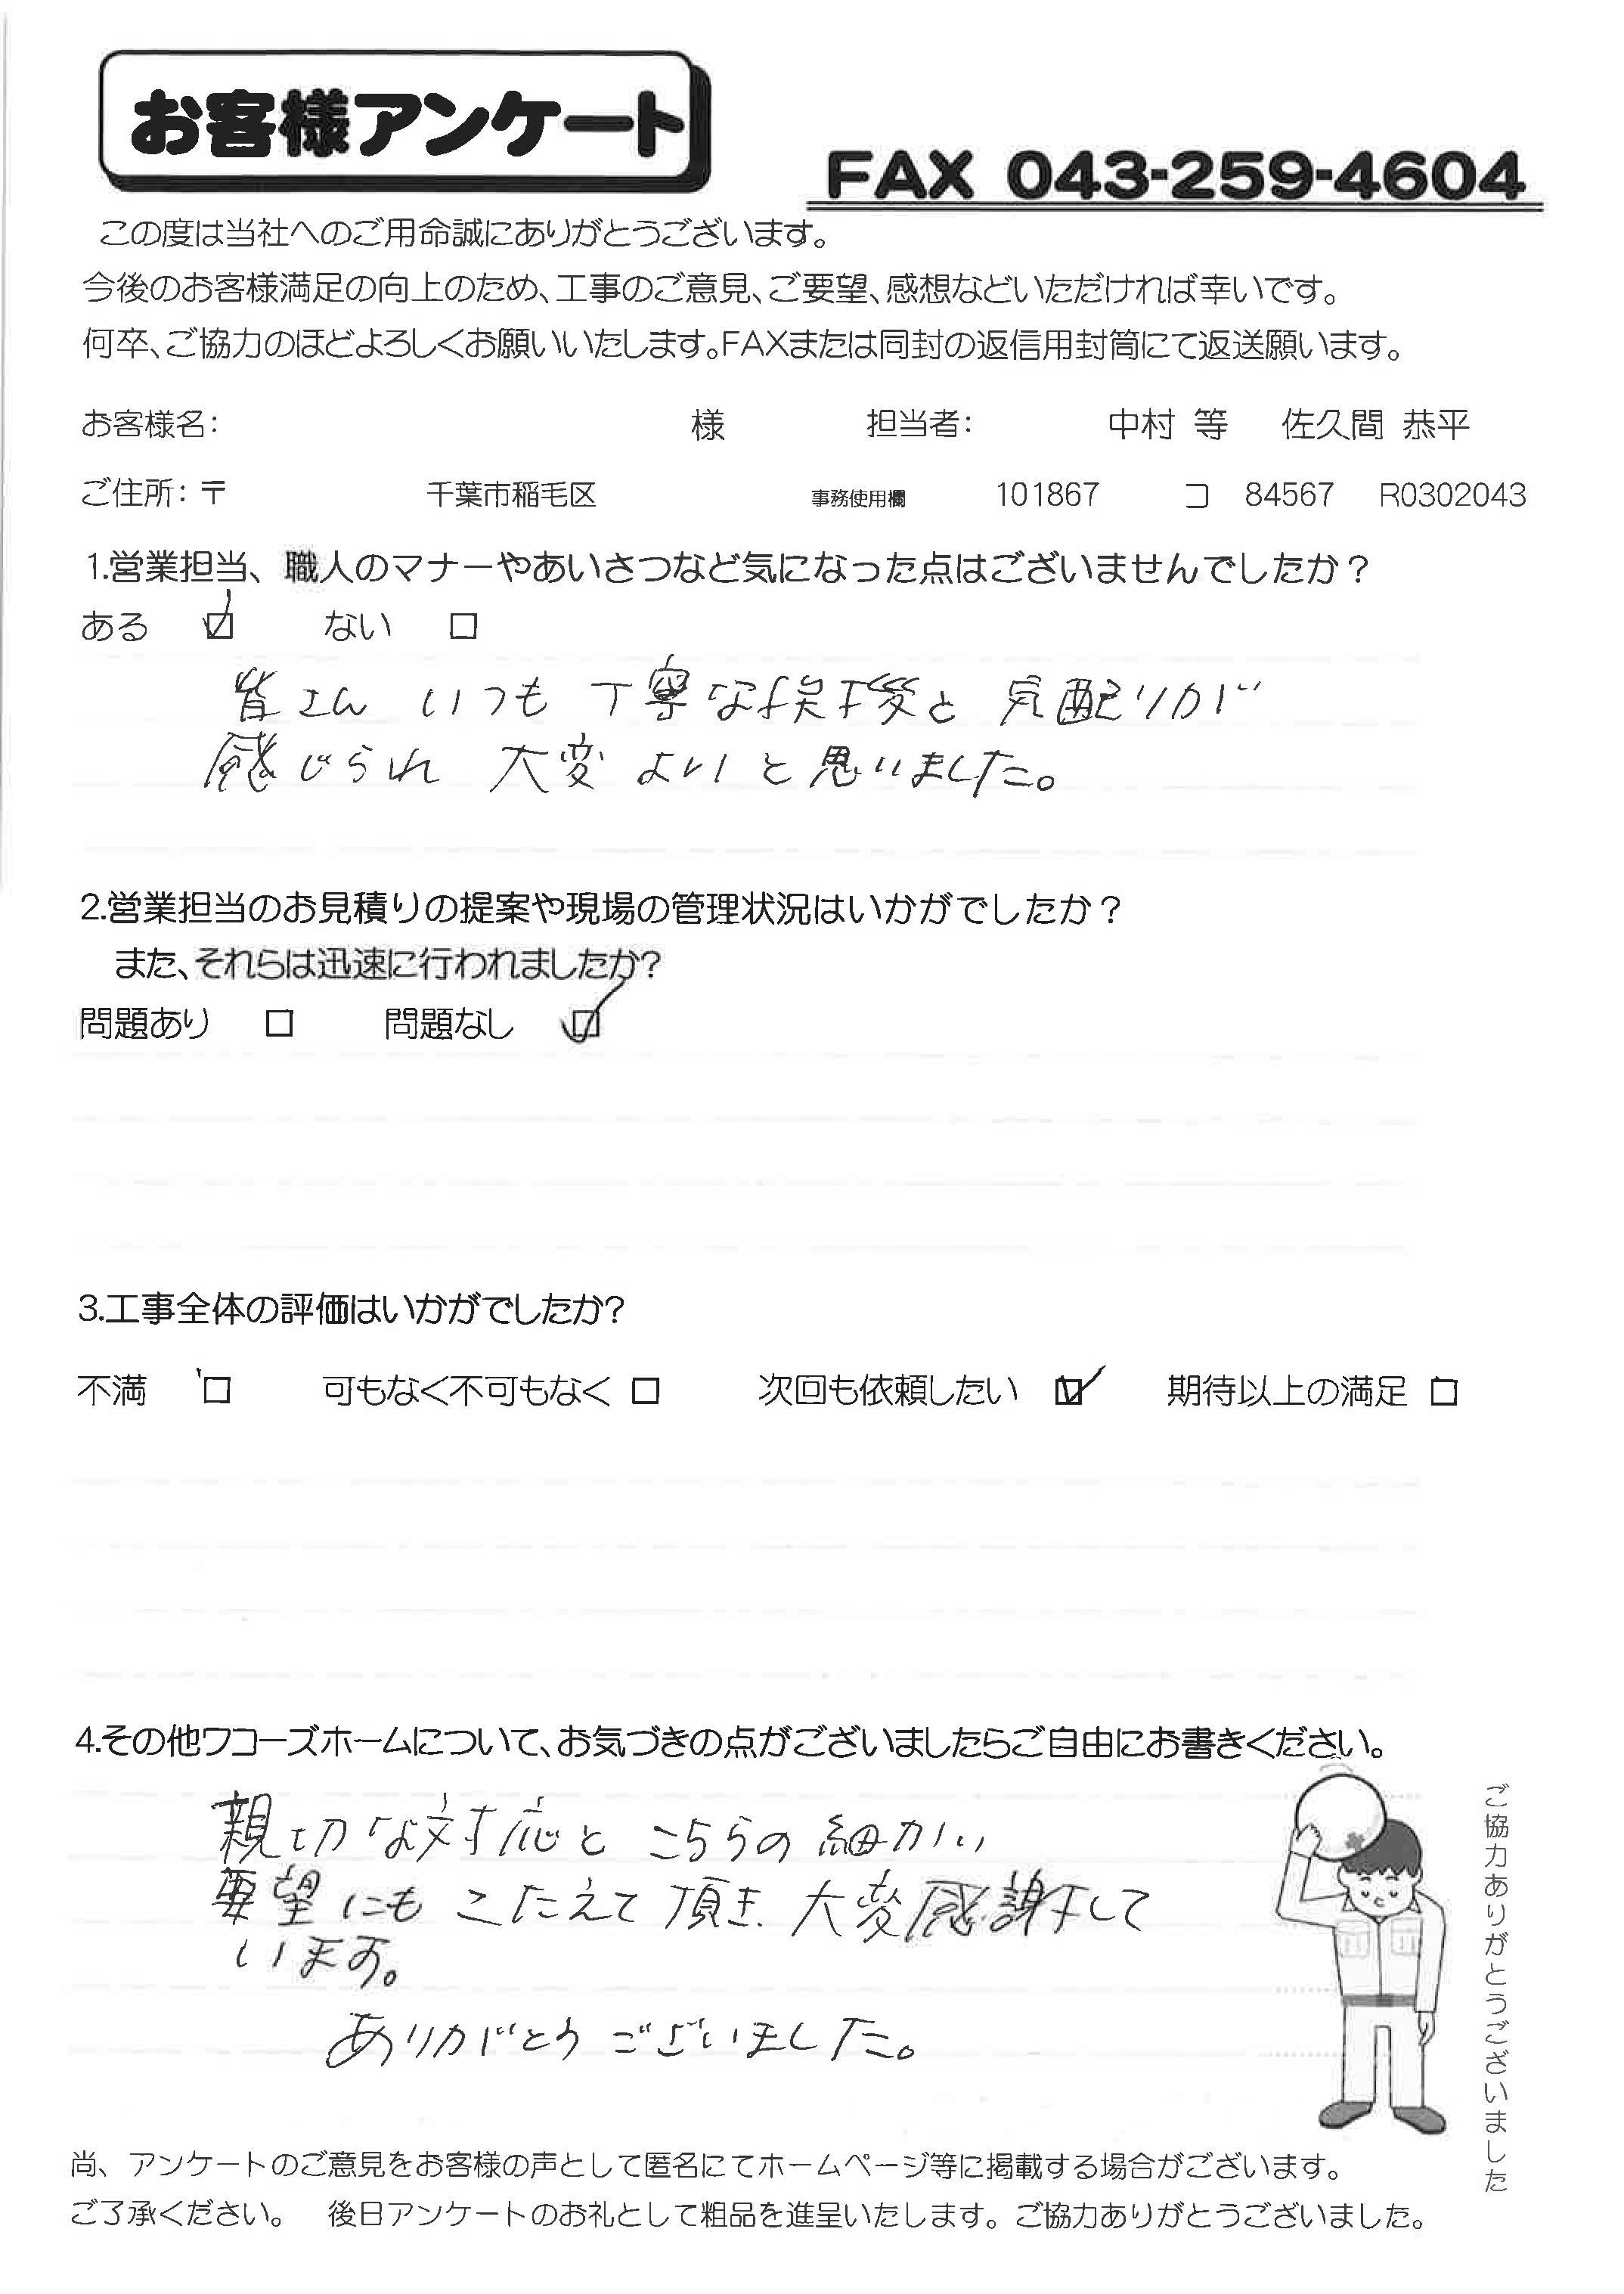 お客様アンケート
FAX 043-259-4604
この度は当社へのご用命誠にありがとうございます。
今後のお客様満足の向上のため、工事のご意見、ご要望、感想などいただければ幸いです。
何卒、ご協力のほどよろしくお願いいたします。FAXまたは同封の返信用封筒にて返送願います。
お客様名： 様 担当者： 中村 等 佐久間 恭平
ご住所：〒 千葉市稲毛区 事務使用欄 101867 コ 84567 R0302043
1.営業担当、職人のマナーやあいさつなど気になった点はございませんでしたか？
ある ☑ ない □
皆さん いつも 丁寧な挨拶と 気配りが
感じられ 大変 よいと思いました。
2.営業担当のお見積りの提案や現場の管理状況はいかがでしたか？
また、それらは迅速に行われましたか?
問題あり □ 問題なし ☑
3.工事全体の評価はいかがでしたか?
不満 □ 可もなく不可もなく □ 次回も依頼したい ☑ 期待以上の満足 □
4.その他ワコーズホームについて、お気づきの点がございましたらご自由にお書きください。
親切な対応と こちらの細かい
要望にも こたえて頂き、大変感謝して
います。
ありがとうございました。
ご協力ありがとうございました
尚、アンケートのご意見をお客様の声として匿名にてホームページ等に掲載する場合がございます。
ご了承ください。 後日アンケートのお礼として粗品を進呈いたします。ご協力ありがとうございました。